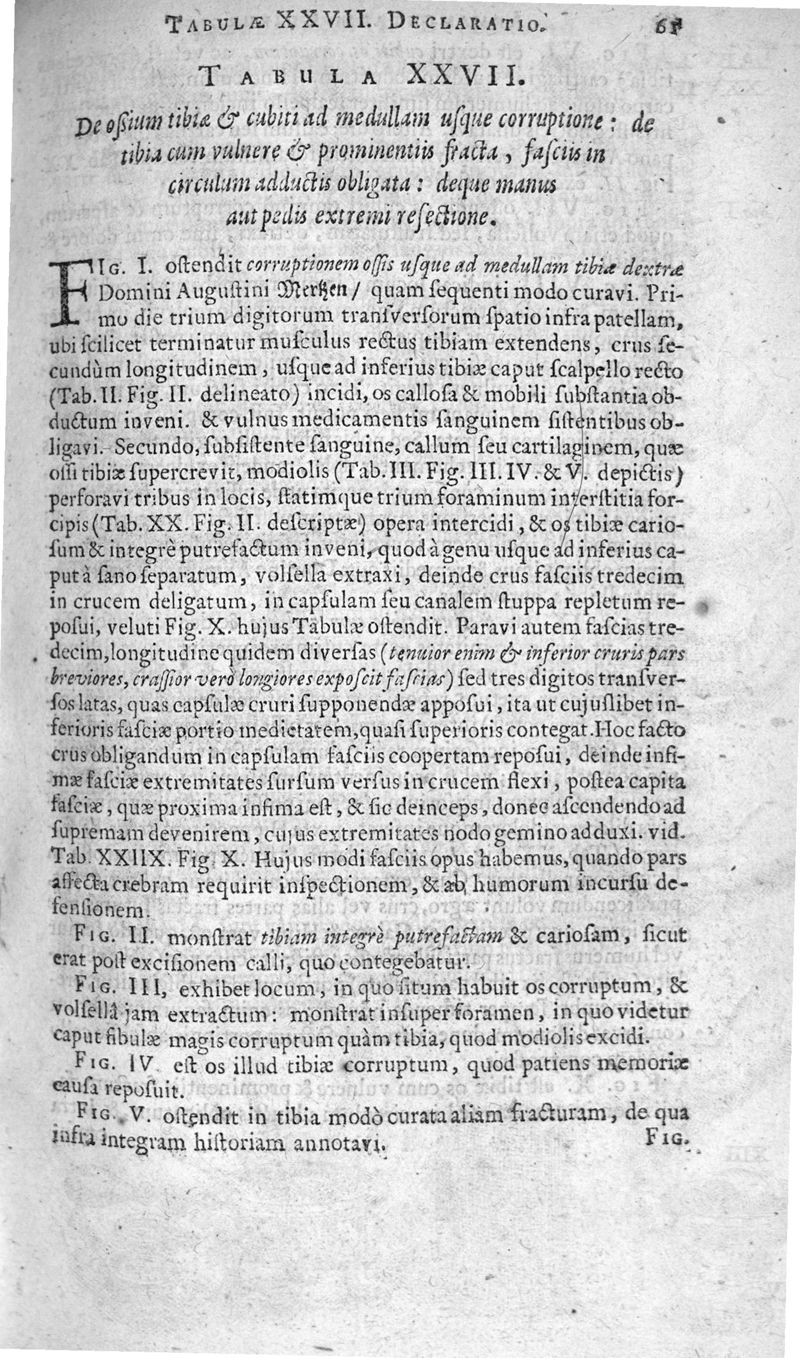 TABULÆ XXVII. DECLARATIO. 61
TABULA XXVII.
De oſsium tibiæ & cubiti ad medullam uſque corruptione: de
tibia cum vulnere & prominentiis fracta, faſciis in
circulum adductis obligata: deque manus
aut pedis extremi reſectione.
FIG. I. oſtendit corruptionem oſſis uſque ad medullam tibiæ dextræ
Domini Auguſtini Merkzen/ quam ſequenti modo curavi. Pri-
mo die trium digitorum tranſverſorum ſpatio infra patellam,
ubi ſcilicet terminatur muſculus rectus tibiam extendens, crus ſe-
cundùm longitudinem, uſque ad inferius tibiæ caput ſcalpello recto
(Tab. II. Fig. II. delineato) incidi, os calloſa & mobili ſubſtantia ob-
ductum inveni. & vulnus medicamentis ſanguinem ſiſtentibus ob-
ligavi. Secundo, ſubſiſtente ſanguine, callum ſeu cartilaginem, quæ
oſſi tibiæ ſupercrevit, modiolis (Tab. III. Fig. III. IV. & V. depictis)
perforavi tribus in locis, ſtatimque trium foraminum interſtitia for-
cipis (Tab. XX. Fig. II. deſcriptæ) opera intercidi, & os tibiæ cario-
ſum & integrè putrefactum inveni, quod à genu uſque ad inferius ca-
put à ſano ſeparatum, volſella extraxi, deinde crus faſciis tredecim
in crucem deligatum, in capſulam ſeu canalem ſtuppa repletum re-
poſui, veluti Fig. X. hujus Tabulæ oſtendit. Paravi autem faſcias tre-
decim, longitudine quidem diverſas (tenuior enim & inferior cruris pars
breviores, craſſior verò longiores expoſcit faſcias) ſed tres digitos tranſver-
ſos latas, quas capſulæ cruri ſupponendæ appoſui, ita ut cujuſlibet in-
ferioris faſciæ portio medietatem, quaſi ſuperioris contegat. Hoc facto
crus obligandum in capſulam faſciis coopertam repoſui, deinde infi-
mæ faſciæ extremitates ſurſum verſus in crucem flexi, poſtea capita
faſciæ, quæ proxima infima eſt, & ſic deinceps, donec aſcendendo ad
ſupremam devenirem, cujus extremitates nodo gemino adduxi. vid.
Tab. XXIIX. Fig. X. Hujus modi faſciis opus habemus, quando pars
affecta crebram requirit inſpectionem, & ab humorum incurſu de-
fenſionem.
FIG. II. monſtrat tibiam integrè putrefactam & carioſam, ſicut
erat poſt exciſionem calli, quo contegebatur.
FIG. III, exhibet locum, in quo ſitum habuit os corruptum, &
volſellâ jam extractum: monſtrat inſuper foramen, in quo videtur
caput fibulæ magis corruptum quàm tibia, quod modiolis excidi.
FIG. IV. eſt os illud tibiæ corruptum, quod patiens memoriæ
cauſa repoſuit.
FIG. V. oſtendit in tibia modò curata aliam fracturam, de qua
infra integram hiſtoriam annotavi. FIG.